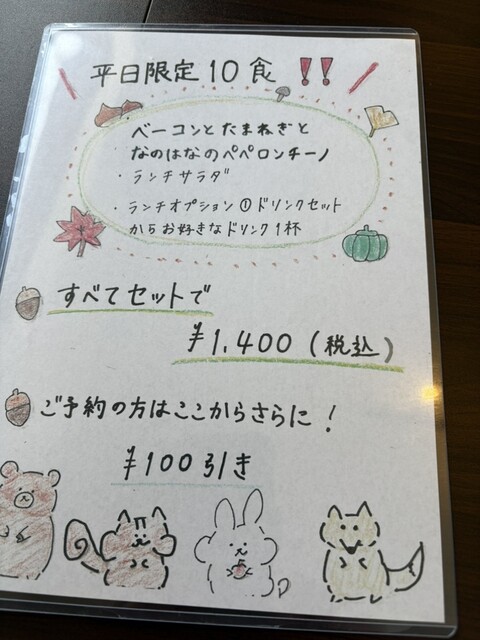 平日限定10食 !!
ベーコンとたまねぎと
なのはなのペペロンチーノ
・ランチサラダ
・ランチオプション①ドリンクセット
からお好きなドリンク1杯
すべてセットで
¥1.400(税込)
ご予約の方はここからさらに!
¥100引き